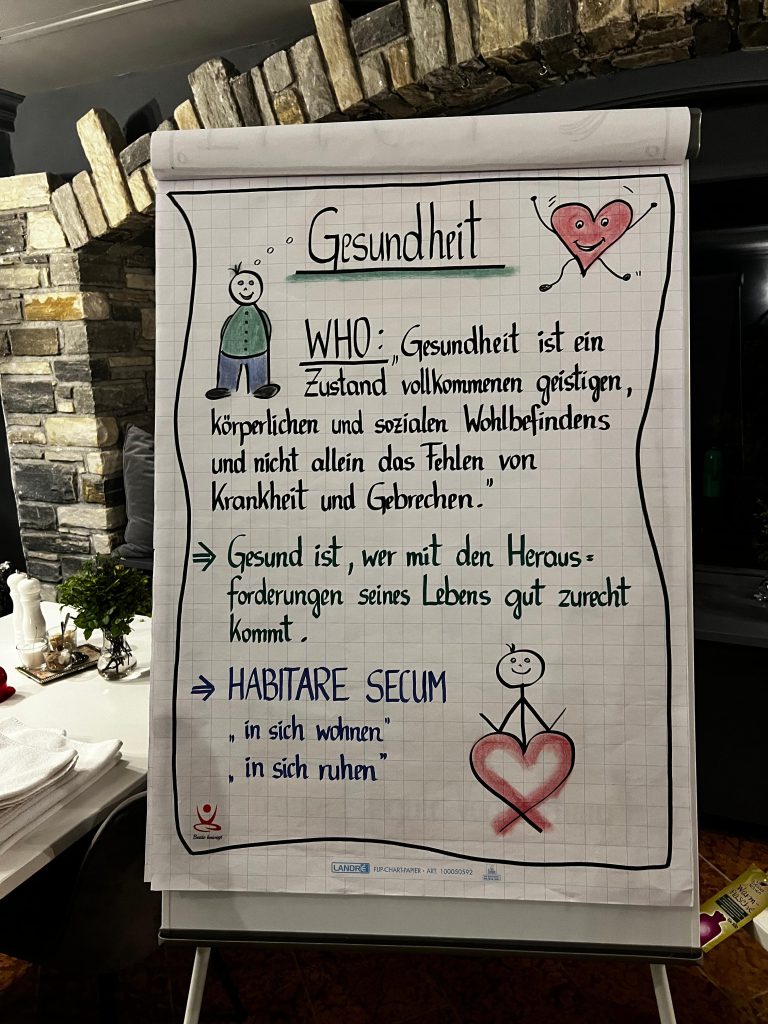 Gesundheit
WHO: „Gesundheit ist ein
Zustand vollkommenen geistigen,
körperlichen und sozialen Wohlbefindens
und nicht allein das Fehlen von
Krankheit und Gebrechen."
⇒ Gesund ist, wer mit den Heraus=
forderungen seines Lebens gut zurecht
kommt.
⇒ HABITARE SECUM
„in sich wohnen"
„in sich ruhen"
Beate bewegt
LANDRÉ FLIP-CHART-PAPIER • ART. 100050592
Warm